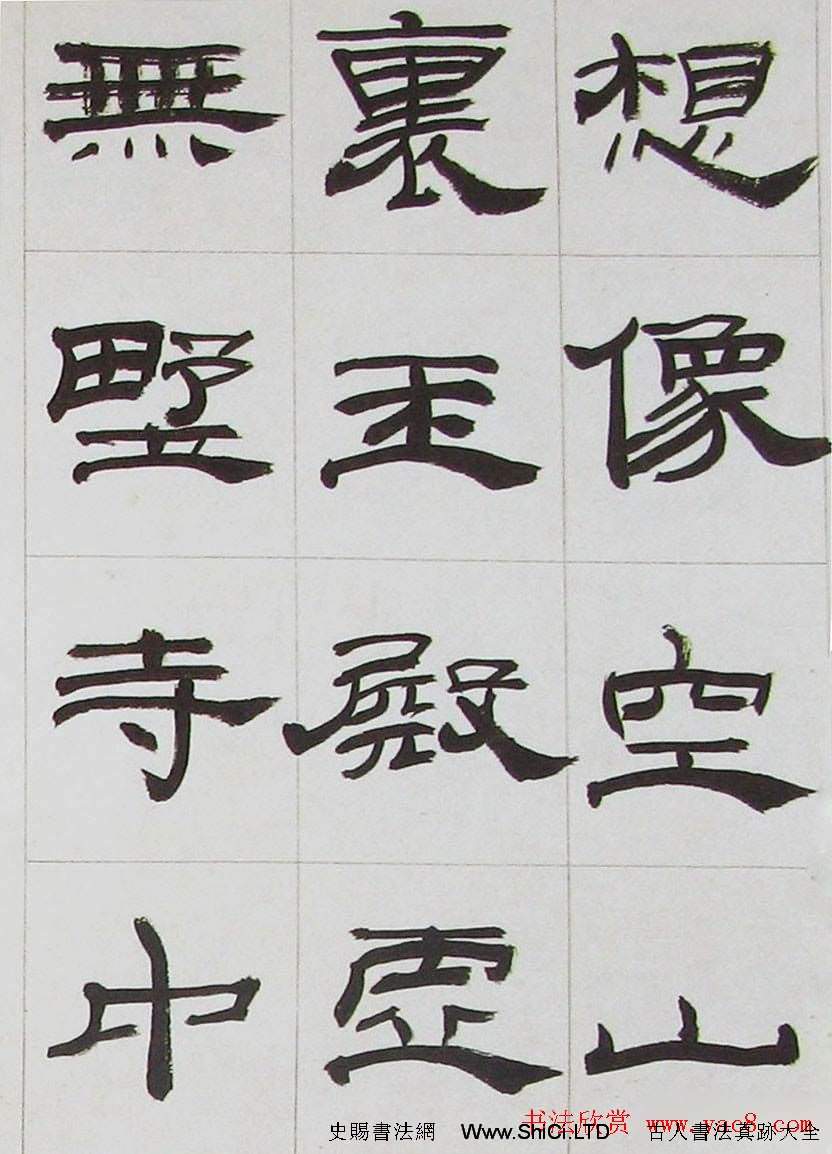 想像空山
裏玉殿虛
無野寺中
书法欣赏 www.yac8.com
史賜書法網 Www.ShiCi.LTD 古人書法真跡大全